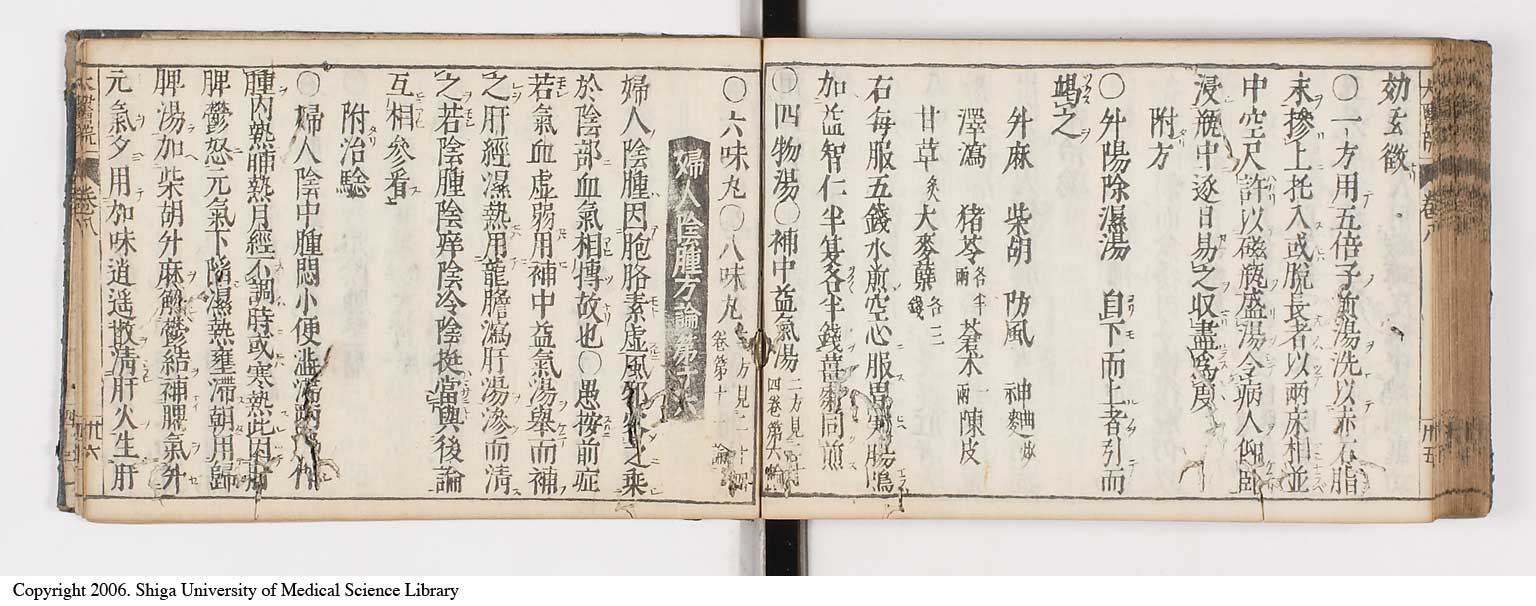 効玄微
〇一方用五倍子煎湯洗以赤石脂
末摻上托入或脫長者以兩床相並
中空尺許以磁瓶盛湯令病人仰臥
浸瓶中逐日易之収盡爲度
附方
〇升陽除濕湯 自下而上者引而
竭之
升麻 柴胡 防風 神麯
澤瀉 猪苓各半兩 蒼朮一兩 陳皮
甘草炙 大麥蘗各三錢
右每服五錢水煎空心服胃寒腸鳴
加益智仁半夏各半錢薑棗同煎
四物湯〇補中益氣湯二方見二十四卷第六論
〇六味丸〇八味丸二方見二十四卷第十論
婦人陰腫方論第十八
婦人陰腫因胞胳素虛風邪客之乘
於陰部血氣相搏故也〇愚按前症
若氣血虛弱用補中益氣湯舉而補
之肝經濕熱用龍膽瀉肝湯滲而淸
之若陰腫陰痒陰冷陰挺當與後論
互相參看
附治驗
〇婦人陰中腫悶小便澁滯兩
腫內熱晡熱月經不調時或寒熱此因肝
脾鬱怒元氣下陷濕熱壅滯朝用歸
脾湯加柴胡升麻解鬱結補脾氣升
元氣夕用加味逍遥散淸肝火生肝
卷八
卅五
卅六
Copyright 2006. Shiga University of Medical Science Library